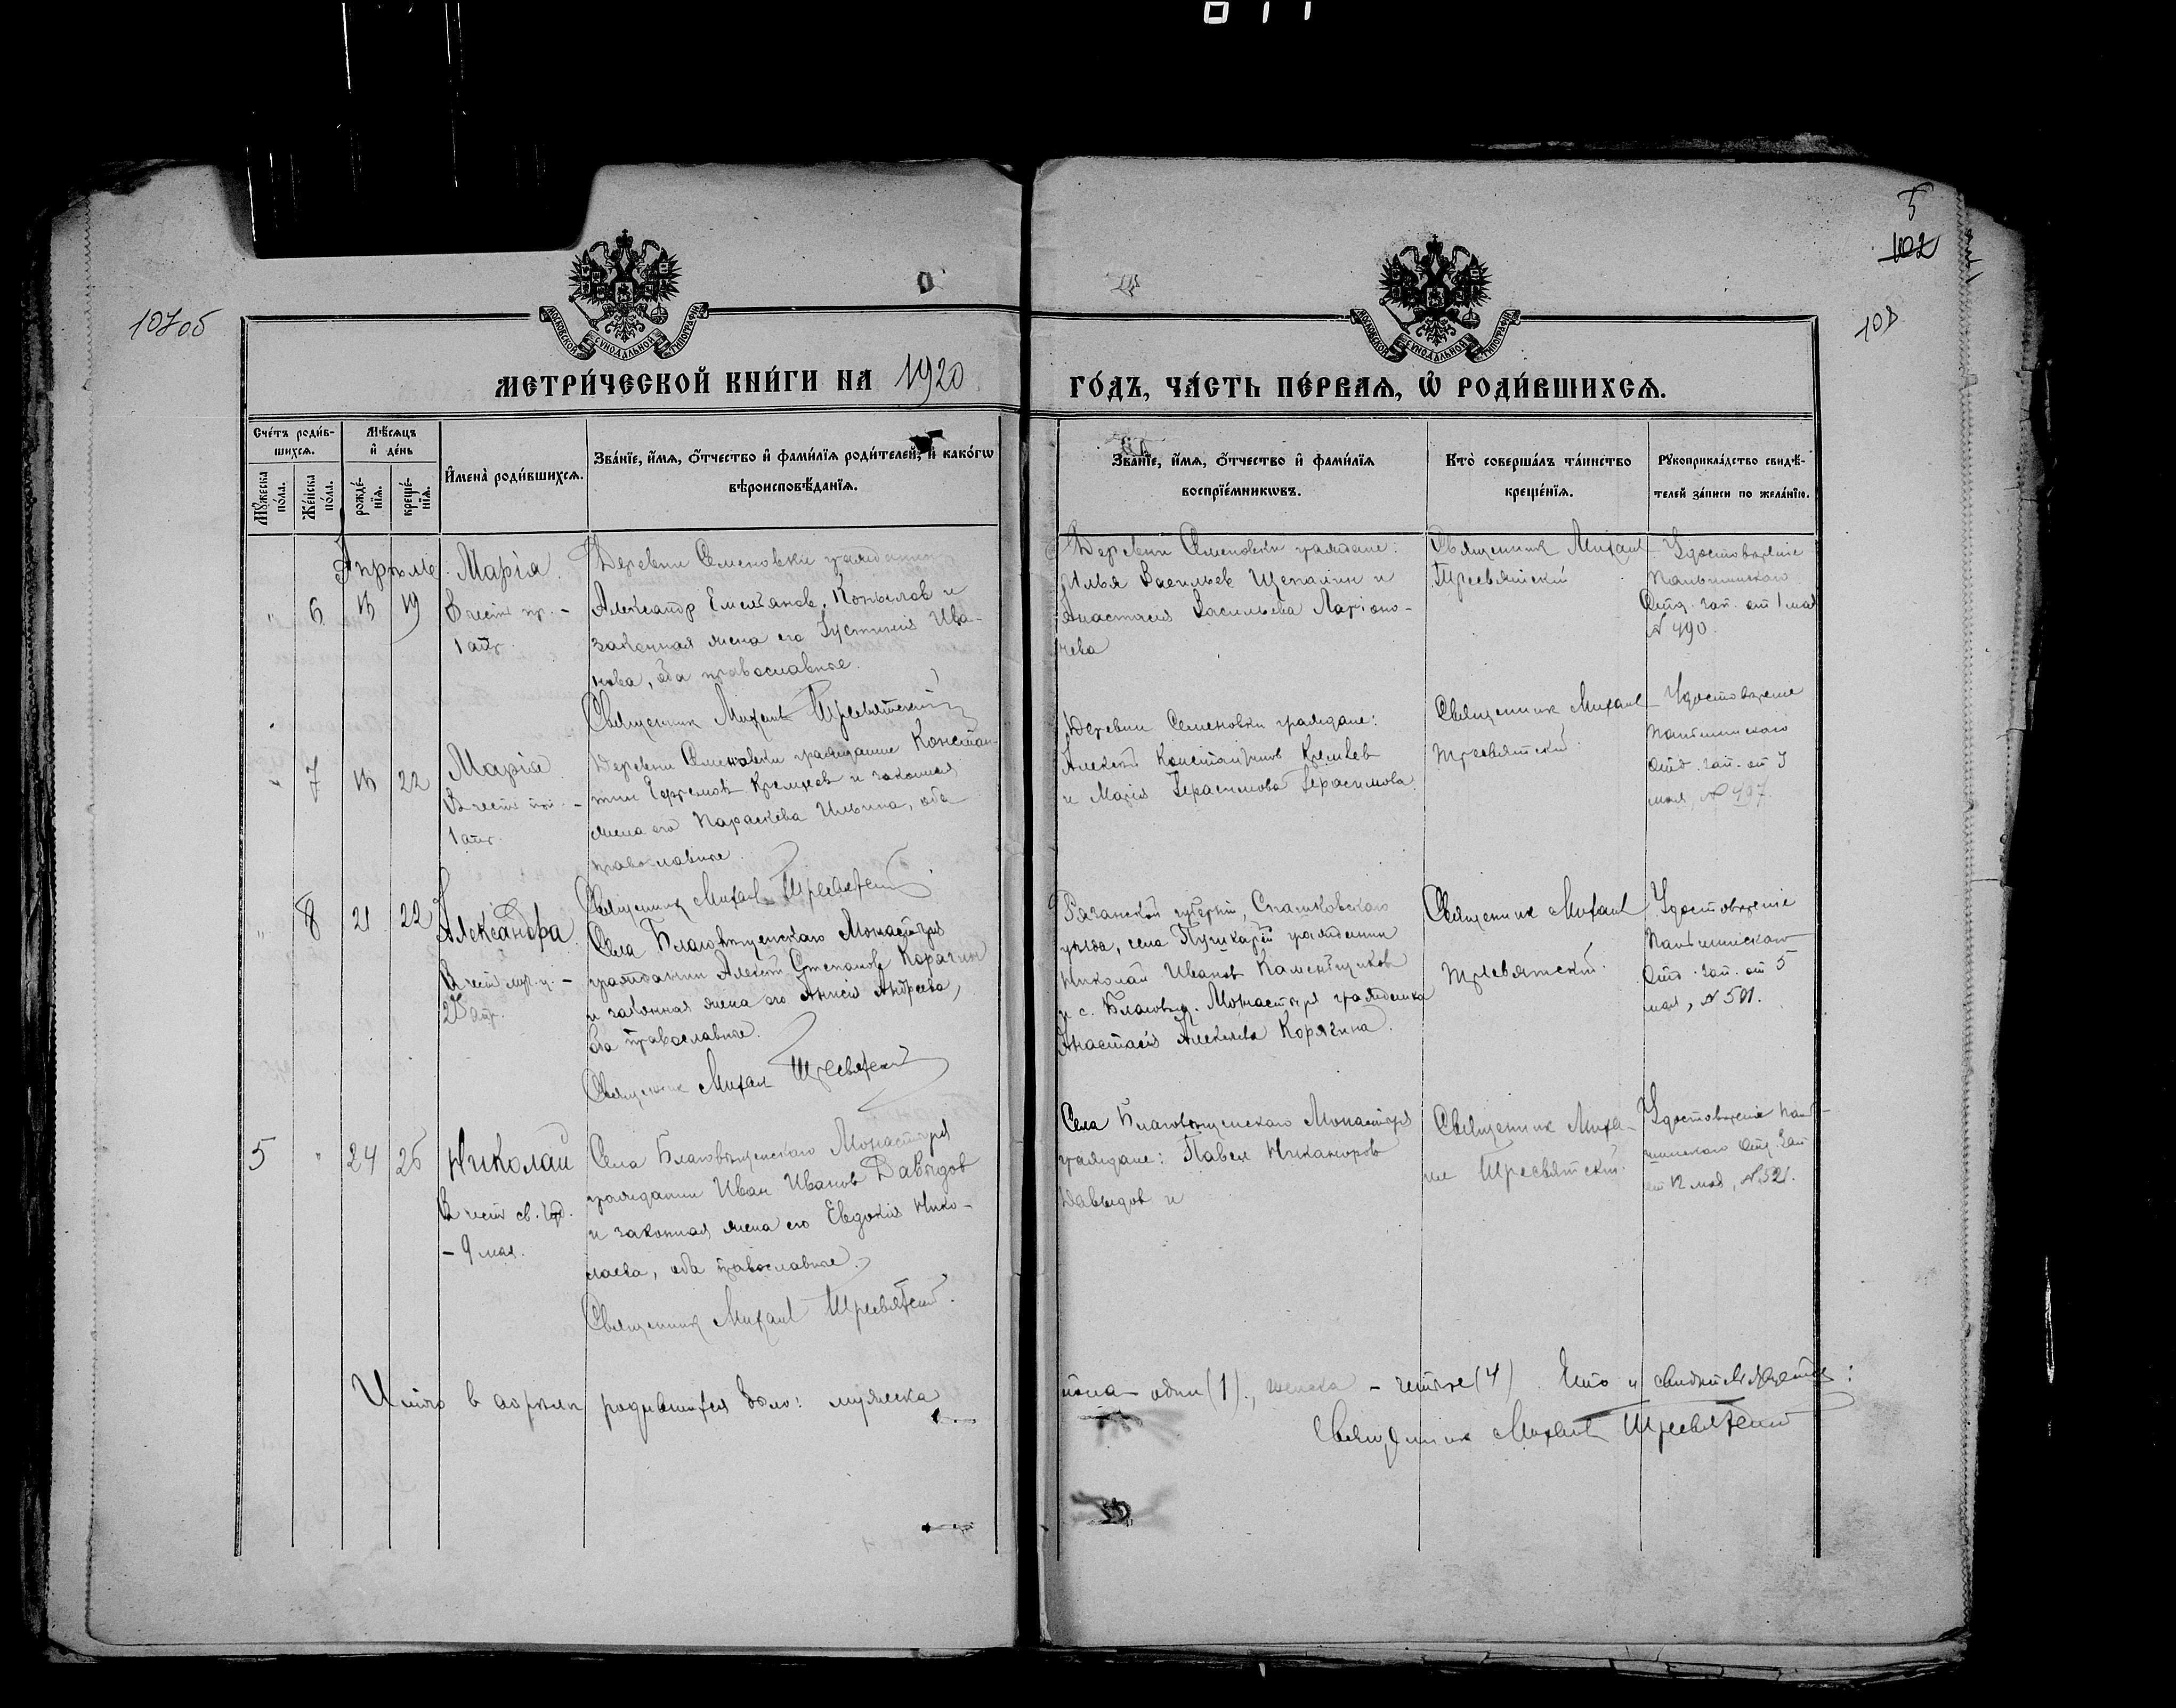 107об
5
102
108
МОСКОВСКОЙ СѴНОДАЛЬНОЙ ТИПОГРАФІИ
МОСКОВСКОЙ СѴНОДАЛЬНОЙ ТИПОГРАФІИ
МЕТРИ́ЧЕСКОЙ КНИ́ГИ НА 1920 ГО́ДЪ, ЧА́СТЬ ПЕ́РВАѦ, Ѡ҆ РОДИ́ВШИХСѦ.
Сче́тъ роди́в-
шихсѧ.
Мꙋ́жеска по́ла.
Же́нска по́ла.
Мѣ́сѧцъ
и҆ де́нь
рожде́-
нїѧ.
креще́-
нїѧ.
И҆мена̀ роди́вшихсѧ.
Зва́нїе, и҆́мѧ, ѻ҆́тчество и҆ фами́лїѧ роди́телей, и҆ како́гѡ
вѣроисповѣ́данїѧ.
Зва́нїе, и҆́мѧ, ѻ҆́тчество и҆ фами́лїѧ
воспрїе́мникѡвъ.
Кто̀ соверша́лъ та́инство
креще́нїѧ.
Рꙋкоприкла́дство свидѣ́-
телей за́писи по жела́нїю.
Апрѣль
" 6 19
Марія.
В честь пр. -
1 апр.
Деревни Семеновки гражданин
Александр Емельянов Копылов и
законная жена его Іустинія Ива-
нова, оба православные.
Священник Михаил Тресвятский
Деревни Семеновки граждане:
Илья Васильев Щепалин и
Анастасія Васильева Ларіоно-
чева
Священник Михаил
Тресвятский
Удостоверение
отд. зап. от 1 мая
№ 490.
" 7 22
Марія
В честь пр. -
1 апр.
Деревни Семеновки гражданин Констан-
тин Ефремов Кремнев и законная
жена его Параскева Ильина, оба
православные.
Священник Михаил Тресвятский
Деревни Семеновки граждане:
Алексей Константинов Кремнев
и Марія Герасимова Герасимова
Священник Михаил
Тресвятский
Удостоверение
отд. зап. от
мая, № 497.
" 8 21 22
Александра
В честь муч. ц. -
23 апр.
Села Благовещенскаго Монастыря
гражданин Алексей Степанов Корягин
и законная жена его Анисія Андреева,
оба православные.
Священник Михаил Тресвятский
Рязанской губерніи,
уезда, села Пушкари гражданин
Николай Иванов Каменщиков
и с. Благовещ. Монастыря гражданка
Анастасія Алексеева Корягина.
Священник Михаил
Тресвятский.
Удостоверение
отд. зап. от 5
мая, № 501.
5 " 24 26
Николай
В честь св.
- 9 мая.
Села Благовещенскаго Монастыря
гражданин Иван Иванов Давыдов
и законная жена его Евдокія Нико-
лаева, оба православные.
Священник Михаил Тресвятский.
Села Благовещенскаго Монастыря
граждане: Павел Никаноров
Давыдов и
Священник Миха-
ил Тресвятский.
Удостоверение
отд. зап
от 12 мая, № 521.
Итого в апреле родившихся было: мужеска пола - один (1), женска - четыре (4) Что и свидетельствует:
Священник Михаил Тресвятский